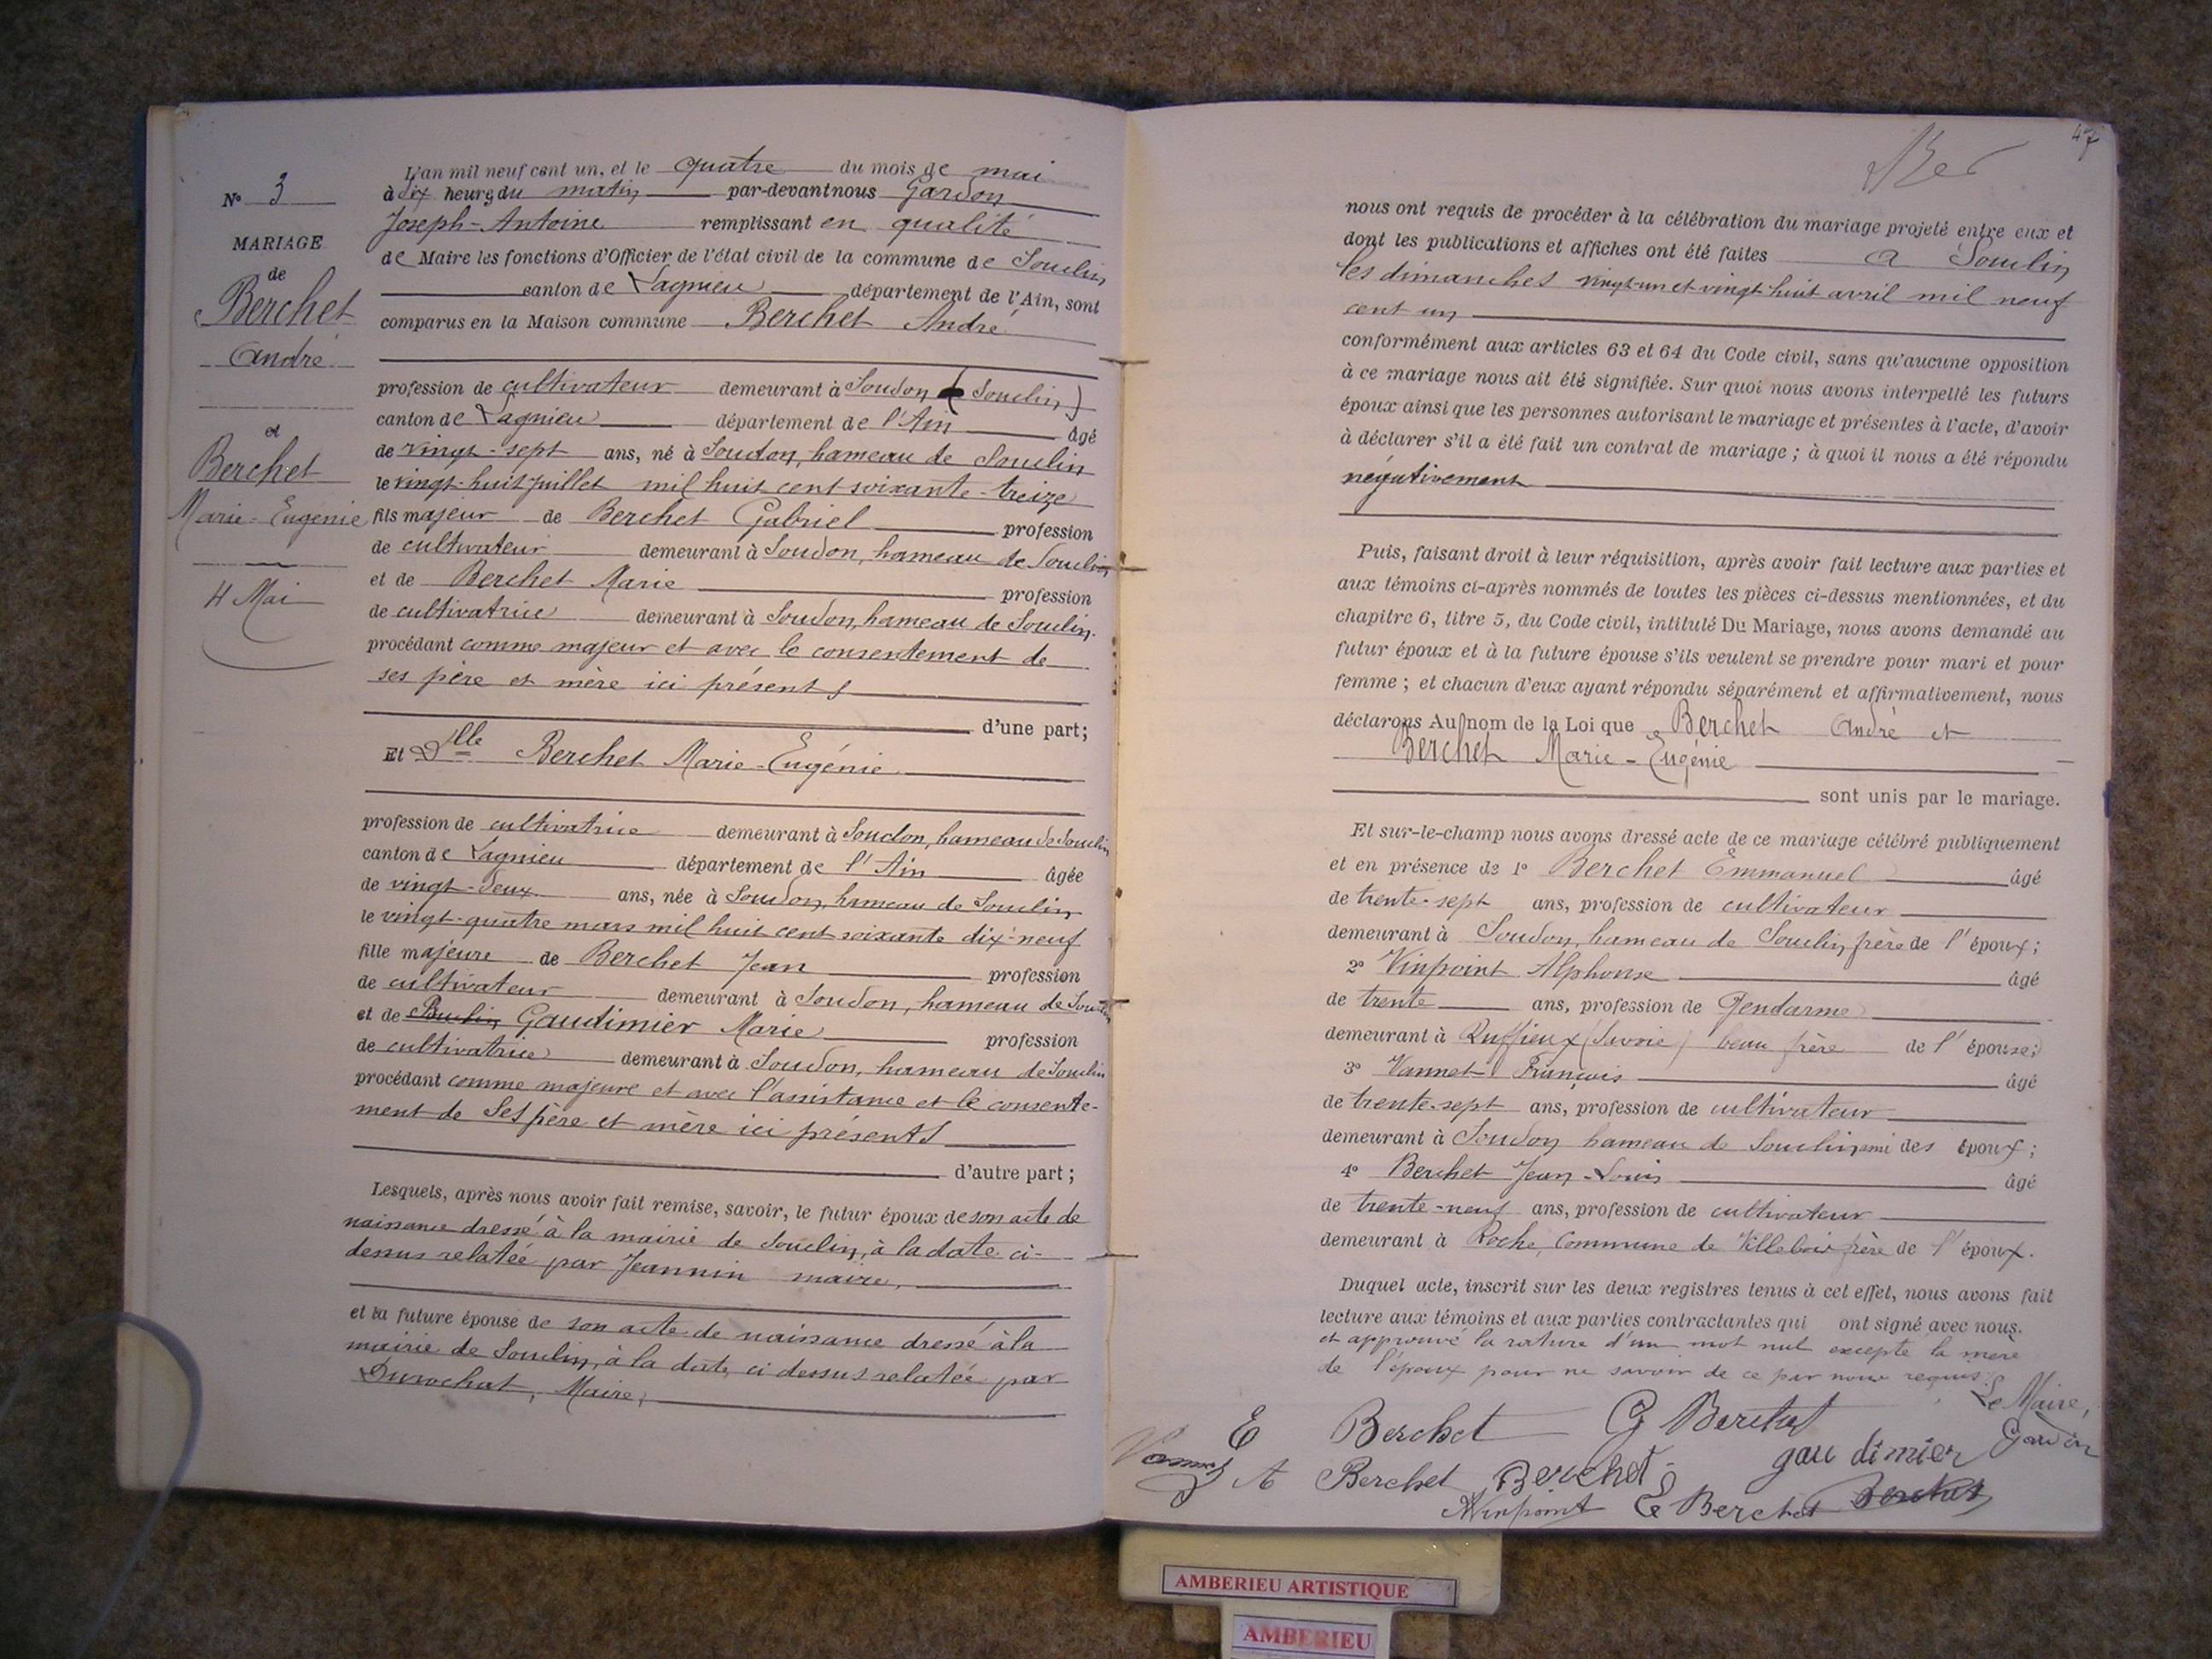 N° 3
MARIAGE
de
Berchet
André
et
Berchet
Marie-Eugénie
4 Mai
L'an mil neuf cent un, et le quatre du mois de mai
à dix heures du matin par-devant nous Gardon
Joseph-Antoine remplissant en qualité
de Maire les fonctions d'Officier de l'état civil de la commune de Souclin
canton de Lagnieu département de l'Ain, sont
comparus en la Maison commune Berchet André
profession de cultivateur demeurant à Soudon (Souclin)
canton de Lagnieu département de l'Ain âgé
de vingt-sept ans, né à Soudon, hameau de Souclin
le vingt-huit juillet mil huit cent soixante-treize
fils majeur de Berchet Gabriel profession
de cultivateur demeurant à Soudon, hameau de Souclin
et de Berchet Marie profession
de cultivatrice demeurant à Soudon, hameau de Souclin.
procédant comme majeur et avec le consentement de
ses père et mère ici présents
d'une part;
Et Dlle Berchet Marie-Eugénie
profession de cultivatrice demeurant à Soudon, hameau de Souclin
canton de Lagnieu département de l'Ain âgée
de vingt-deux ans, née à Soudon, hameau de Souclin
le vingt-quatre mars mil huit cent soixante dix-neuf
fille majeure de Berchet Jean profession
de cultivateur demeurant à Soudon, hameau de Souclin
et de Gaudimier Marie profession
de cultivatrice demeurant à Soudon, hameau de Souclin
procédant comme majeure et avec l'assistance et le consente-
ment de Ses père et mère ici présents
d'autre part;
Lesquels, après nous avoir fait remise, savoir, le futur époux de son acte de
naissance dressé à la mairie de Souclin, à la date ci-
dessus relatée par Jeannin maire,
et la future épouse de son acte de naissance dressé à la
mairie de Souclin, à la date ci dessus relatée par
Durochat, Maire,
47
nous ont requis de procéder à la célébration du mariage projeté entre eux et
dont les publications et affiches ont été faites à Souclin
les dimanches vingt-un et vingt huit avril mil neuf
cent un
conformément aux articles 63 et 64 du Code civil, sans qu'aucune opposition
à ce mariage nous ait été signifiée. Sur quoi nous avons interpellé les futurs
époux ainsi que les personnes autorisant le mariage et présentes à l'acte, d'avoir
à déclarer s'il a été fait un contrat de mariage; à quoi il nous a été répondu
négativement
Puis, faisant droit à leur réquisition, après avoir fait lecture aux parties et
aux témoins ci-après nommés de toutes les pièces ci-dessus mentionnées, et du
chapitre 6, titre 5, du Code civil, intitulé Du Mariage, nous avons demandé au
futur époux et à la future épouse s'ils veulent se prendre pour mari et pour
femme; et chacun d'eux ayant répondu séparément et affirmativement, nous
déclarons Au nom de la Loi que Berchet André et
Berchet Marie-Eugénie
sont unis par le mariage.
Et sur-le-champ nous avons dressé acte de ce mariage célébré publiquement
et en présence de 1° Berchet Emmanuel âgé
de trente-sept ans, profession de cultivateur
demeurant à Soudon, hameau de Souclin, frère de l'époux;
2° Vinpoint Alphonse âgé
de trente ans, profession de Gendarme
demeurant à Ruffieux (Savoie) beau frère de l'épouse;
3° Vannet François âgé
de trente-sept ans, profession de cultivateur
demeurant à Soudon hameau de Souclin ami des époux;
4° Berchet Jean-Louis âgé
de trente-neuf ans, profession de cultivateur
demeurant à Roche, Commune de Villebois frère de l'époux.
Duquel acte, inscrit sur les deux registres tenus à cet effet, nous avons fait
lecture aux témoins et aux parties contractantes qui ont signé avec nous.
et approuvé la rature d'un mot nul excepté la mère
de l'époux pour ne savoir de ce par nous requis.
Le Maire,
E Berchet G Berchet Gardon
Vannet A Berchet Berchet gaudimier
AVinpoint E Berchet Berchet
AMBERIEU ARTISTIQUE
AMBERIEU